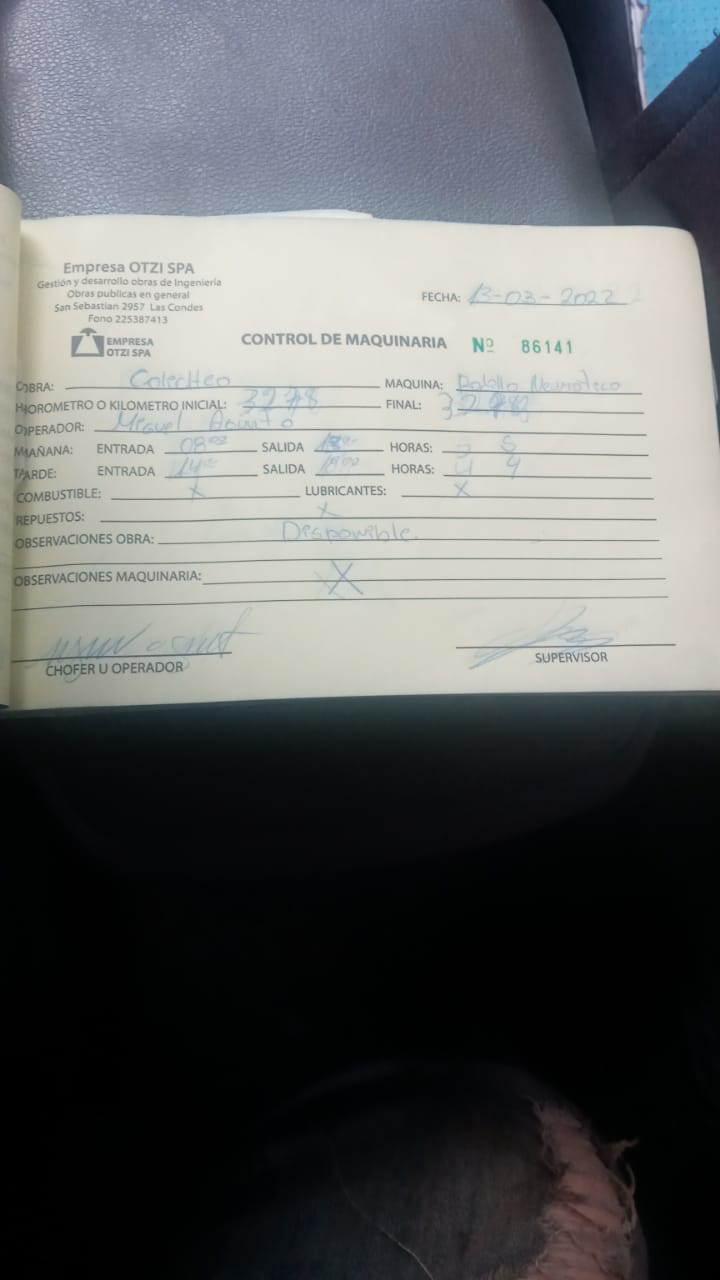 Empresa OTZI SPA
Gestión y desarrollo obras de Ingeniería
Obras publicas en general
San Sebastian 2957 Las Condes
Fono 225387413
EMPRESA
OTZI SPA
FECHA: 13-03-2022
CONTROL DE MAQUINARIA Nº 86141
OBRA: MAQUINA: Rodillo Neumatico
HOROMETRO O KILOMETRO INICIAL: 3278 FINAL: 3278
OPERADOR: Miguel
MAÑANA: ENTRADA 08:00 SALIDA 13:00 HORAS: 5
TARDE: ENTRADA 14:00 SALIDA HORAS: 4
COMBUSTIBLE: X LUBRICANTES: X
REPUESTOS: X
OBSERVACIONES OBRA: Disponible
OBSERVACIONES MAQUINARIA: X
CHOFER U OPERADOR
SUPERVISOR